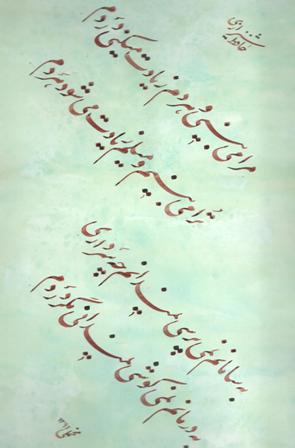 مرا می بینی و هر دم زیادت میکنی دردم
ترا می بینم و میلم زیادت می شود هر دم
به سامانم نمی پرسی نمیدانم چه سر داری
به درمانم نمی کوشی نمیدانی مگر دردم